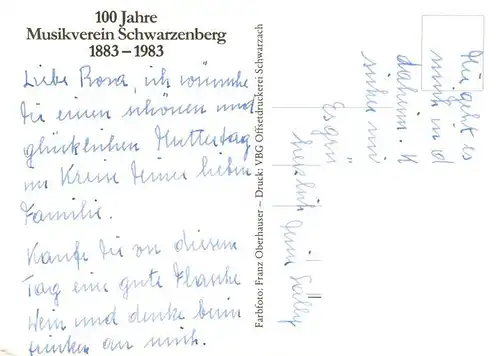 100 Jahre
Musikverein Schwarzenberg
1883 – 1983
Liebe Rosa, ich wünsche
Dir einen schönen und
glücklichen Muttertag
im Kreise Deiner lieben
Familie.
Kaufe Dir an diesem
Tag eine gute Flasche
Wein und denke beim
trinken an mich.
Farbfoto: Franz Oberhauser – Druck: VBG Offsetdruckerei Schwarzach
Mir geht es
daheim.
Es grü
herzlich Dein